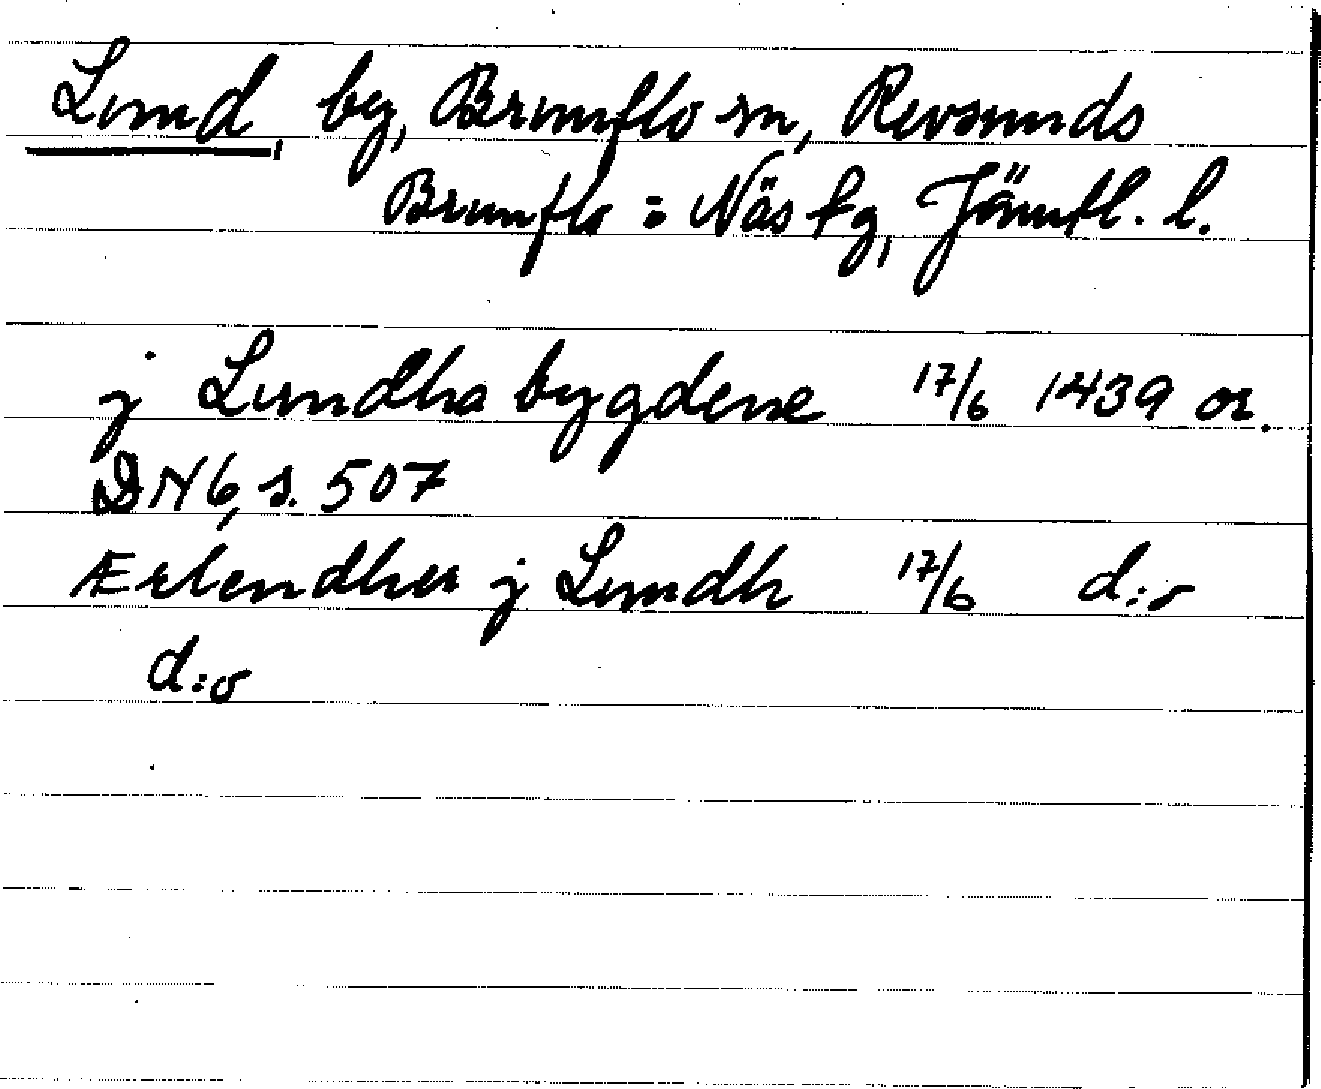 Lund, by, Brunflo sn, Revsunds
Brunflo = Näs tg, Jämtl. l.
j Lundha bygdene 17/6 1439 or.
DN 6, s. 507
Ærlendher j Lundh 17/6 d:o
d:o